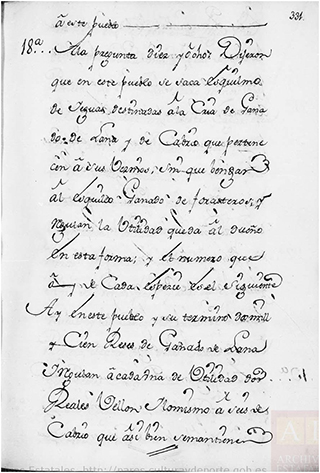 331.
a este pueda
18.ª A la pregunta diez y ocho: Dijeron
que en este pueblo se saca esquilmo
de Yeguas destinadas a la Cria de Gana
do de Lana y de Cabrio que pertene
cen a sus Vecinos, sin que bengan
al esquileo Ganado de forasteros, y
regulan la Utilidad queda al dueño
en esta forma; y el numero que
ay de Cada especie es el Siguiente
Ay en este pueblo y su termino dos mill
y Cien Reses de Ganado de Lana
Regulan a cada una de Utilidad dos
Reales Vellon Lo mismo a Seis de
Cabrio que asi bien se mantienen